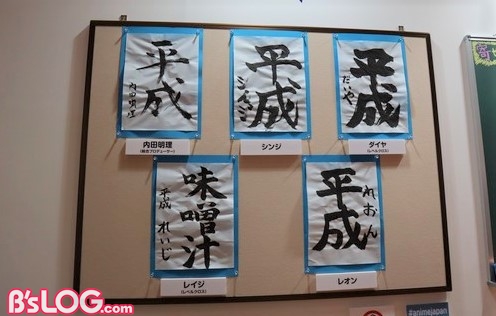 平成
内田明理
内田明理
(総合プロデューサー)
平成
シンジ
シンジ
平成
だいや
ダイヤ
(レベルクロス)
味噌汁
平成 れいじ
レイジ
(レベルクロス)
平成
れおん
レオン
B's-LOG.com
#animejapan